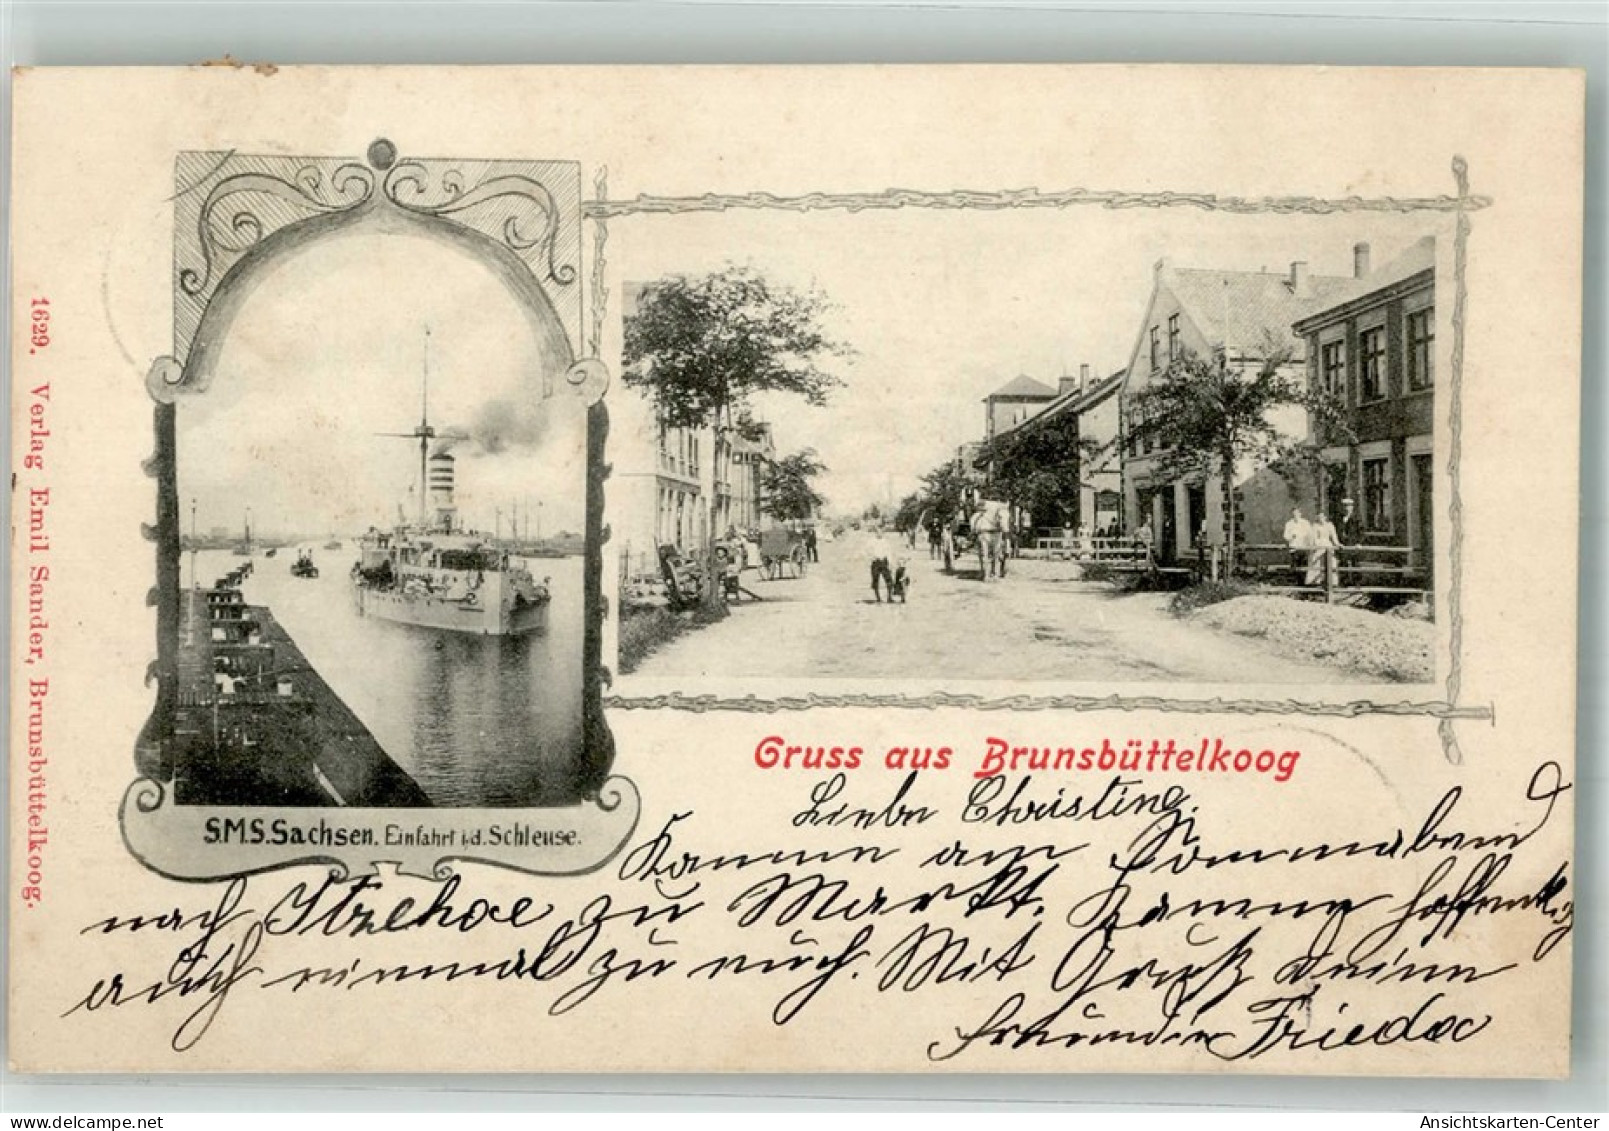 1629. Verlag Emil Sander, Brunsbüttelkoog.
S.M.S. Sachsen. Einfahrt i.d. Schleuse.
Gruss aus Brunsbüttelkoog
Liebe Christine.
Komme am Sonnabend
nach Itzehoe zu Markt. Komme hoffentlich
auch einmal zu euch. Mit Gruß Deine
Freundin Frieda
Ansichtskarten-Center